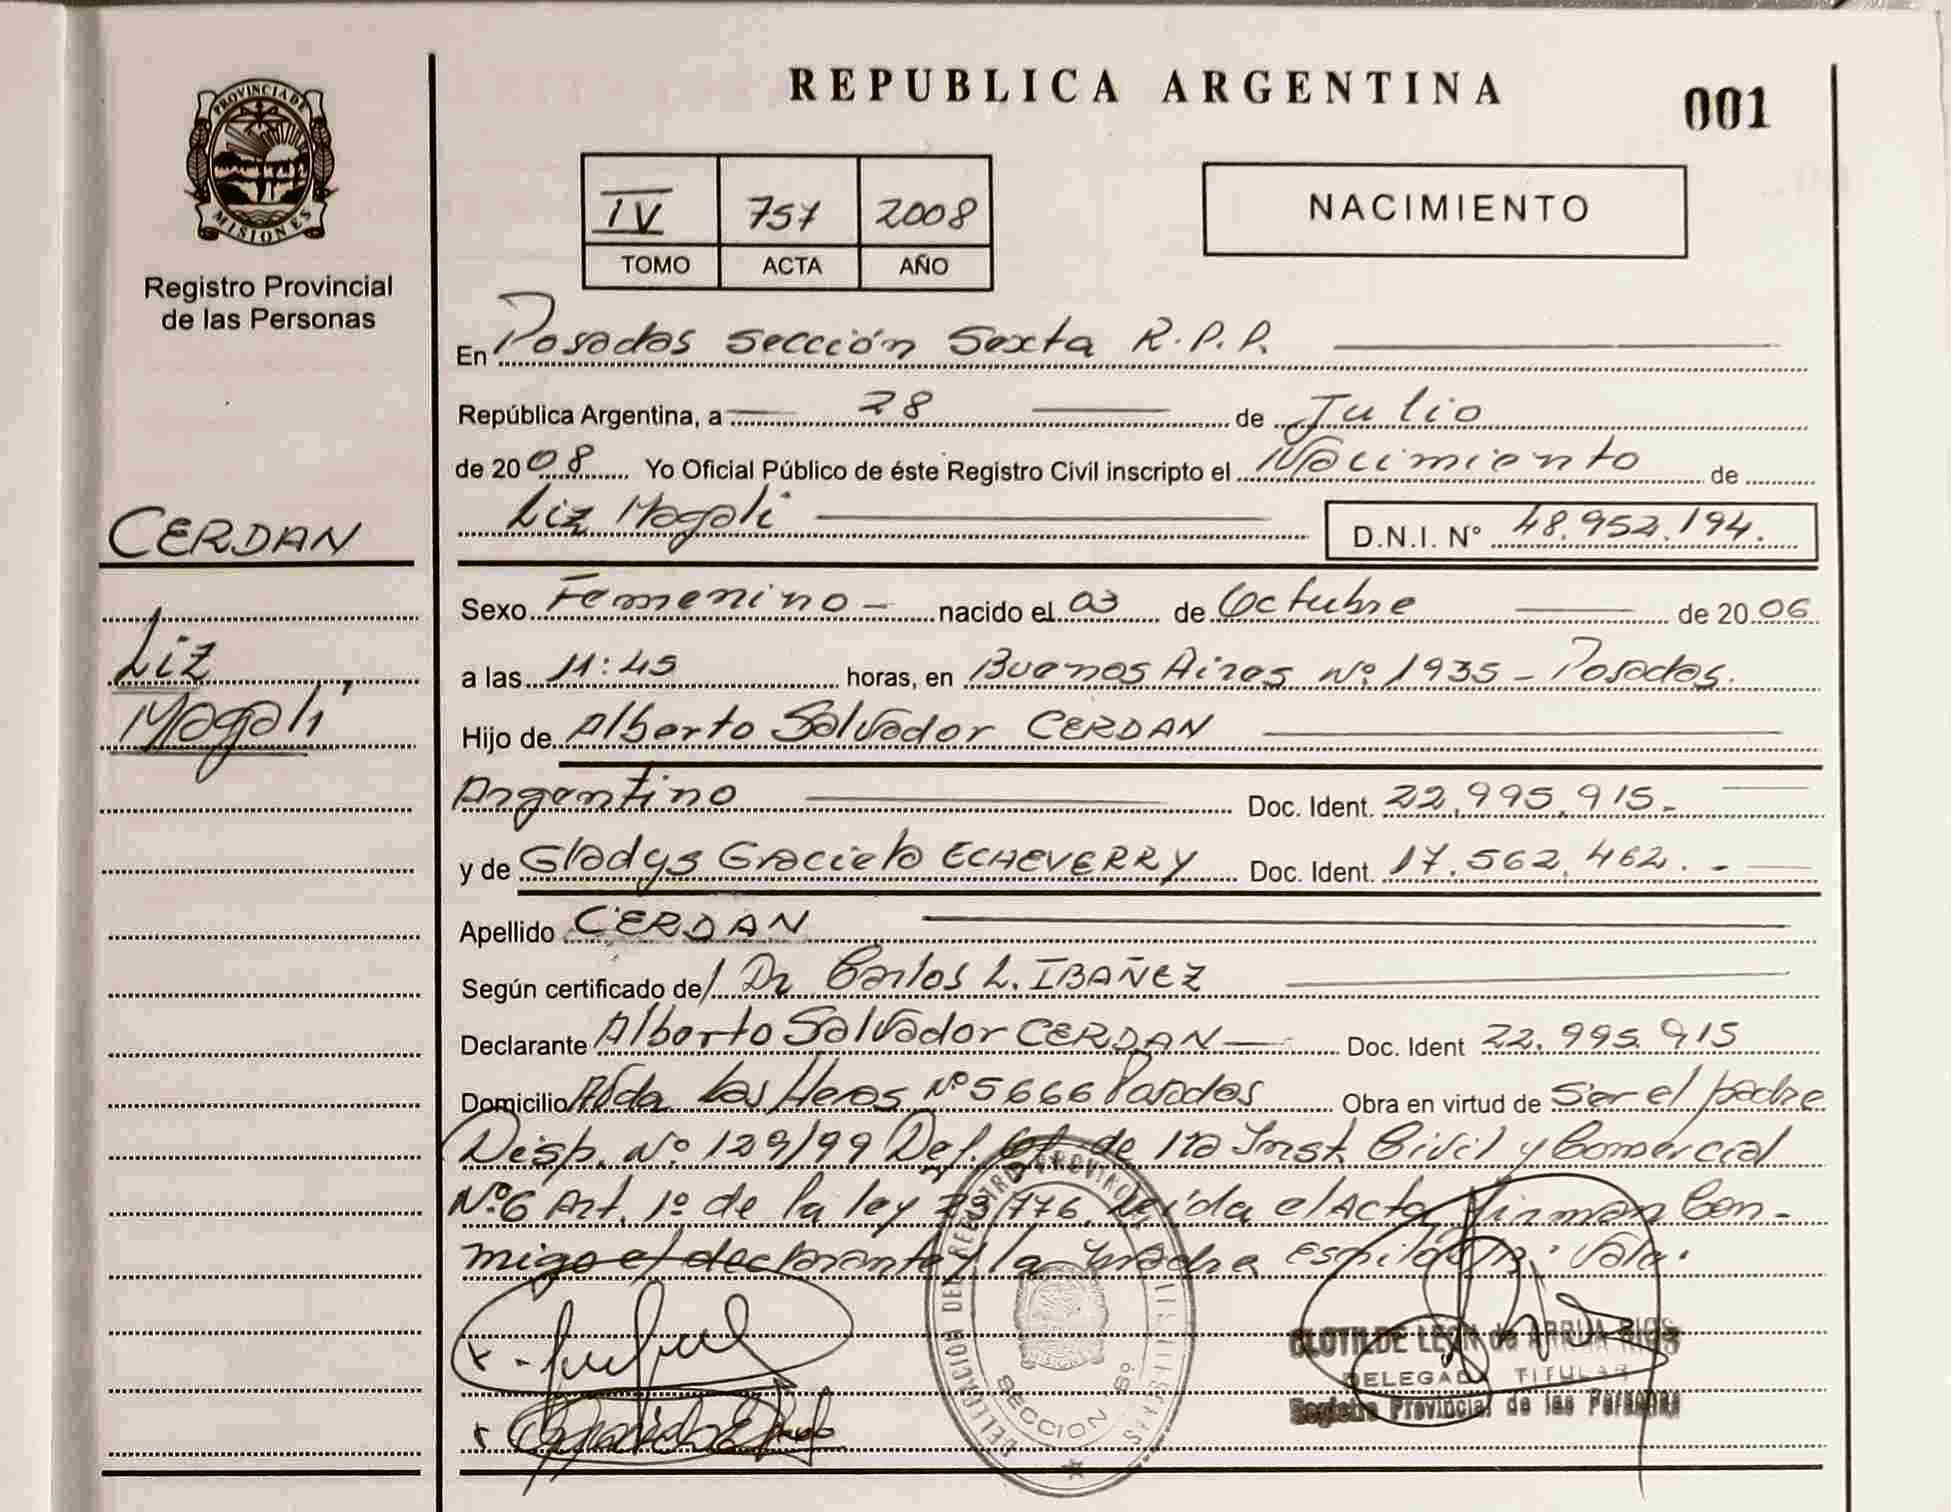 PROVINCIA DE
MISIONES
Registro Provincial
de las Personas
CERDAN
Liz
Magalí
REPUBLICA ARGENTINA
001
IV 757 2008
TOMO ACTA AÑO
NACIMIENTO
En Posadas sección Sexta R.P.P.
República Argentina, a 28 de Julio
de 2008 Yo Oficial Público de éste Registro Civil inscripto el Nacimiento de
Liz Magalí D.N.I. N° 48.952.194.
Sexo Femenino - nacido el 03 de Octubre de 2006
a las 11:45 horas, en Buenos Aires Nº 1935 - Posadas.
Hijo de Alberto Salvador CERDAN
Argentino Doc. Ident. 22.995.915-
y de Gladys Graciela ECHEVERRY Doc. Ident. 17.562.462. -
Apellido CERDAN
Según certificado de/ Dr Carlos L. IBAÑEZ
Declarante Alberto Salvador CERDAN Doc. Ident 22.995.915
Domicilio Avda Las Heras Nº 5666 Posadas Obra en virtud de Ser el padre
Disp. Nº 129/99 Def. de 1ra Inst. Civil y Comercial
Nº6 Art. 1º de la ley leída el Acta firman Con-
migo el declarante y la madre Vale.
DELEGACION DEL REGISTRO PROVINCIAL
SECCION 6º
CLOTILDE LEON de ARRUA RIOS
DELEGADA TITULAR
Registro Provincial de las Personas